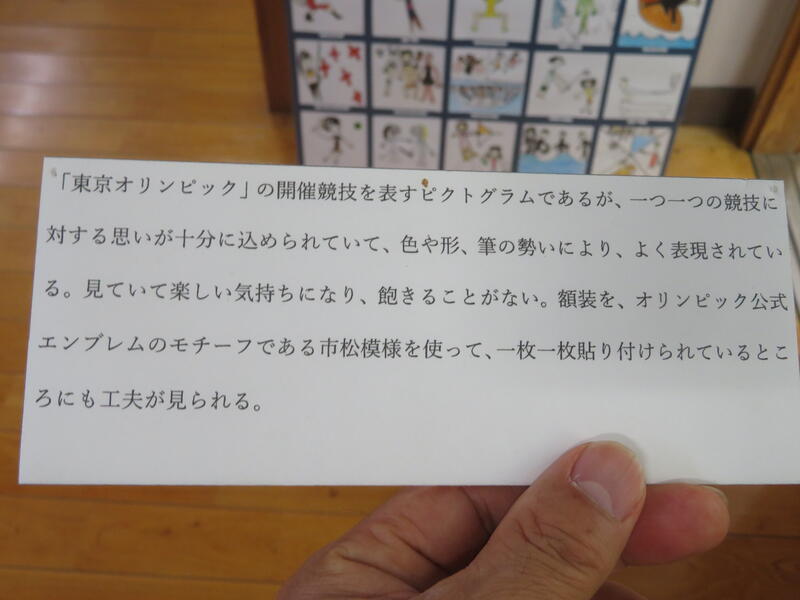 「東京オリンピック」の開催競技を表すピクトグラムであるが、一つ一つの競技に
対する思いが十分に込められていて、色や形、筆の勢いにより、よく表現されてい
る。見ていて楽しい気持ちになり、飽きることがない。額装を、オリンピック公式
エンブレムのモチーフである市松模様を使って、一枚一枚貼り付けられているとこ
ろにも工夫が見られる。